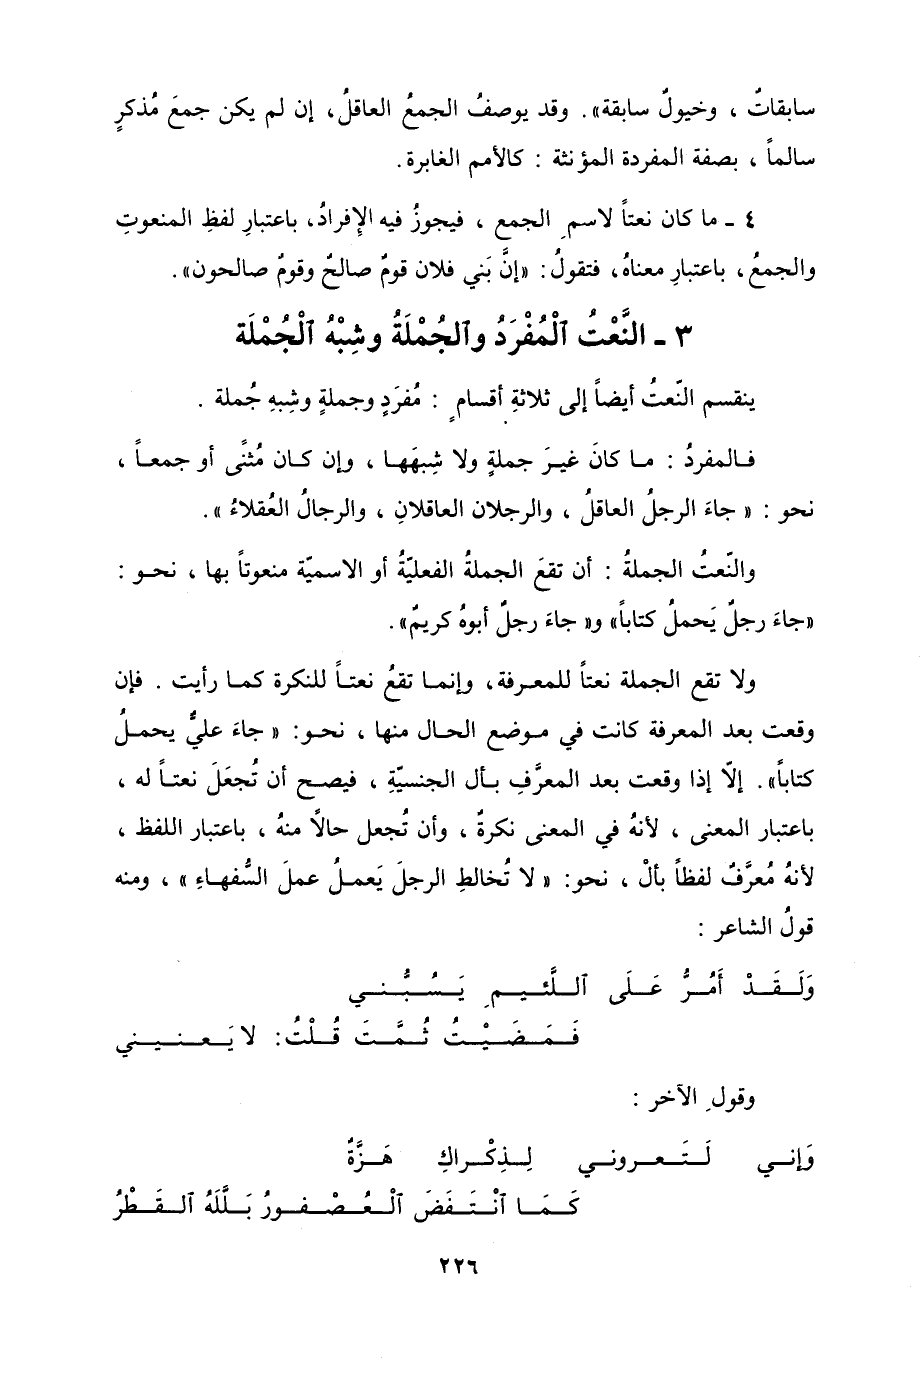 سابقاتٌ ، وخيولٌ سابقة». وقد يوصفُ الجمعُ العاقلُ، إن لم يكن جمعَ مُذكرٍ
سالماً ، بصفة المفردة المؤنثة : كالأمم الغابرة.
٤ ـ ما كان نعتاً لاسمِ الجمع ، فيجوزُ فيه الإفرادُ، باعتبارِ لفظِ المنعوتِ
والجمعُ، باعتبارِ معناهُ، فتقولُ: «إنَّ بَني فلان قومٌ صالحٌ وقومٌ صالحون».
٣ ـ النَّعْتُ ٱلْمُفْرَدُ وٱلجُمْلَةُ وشِبْهُ ٱلْجُمْلَة
ينقسم النّعتُ أيضاً إلى ثلاثةِ أقسامٍ : مُفرَدٍ وجملةٍ وشِبهِ جُملة .
فالمفردُ : ما كانَ غيرَ جملةٍ ولا شِبهَها ، وإن كان مُثنًّى أو جمعاً ،
نحو : « جاءَ الرجلُ العاقلُ ، والرجلان العاقلانِ ، والرجالُ العُقلاءُ ».
والنّعتُ الجملةُ : أن تقعَ الجملةُ الفعليّةُ أو الاسميّة منعوتاً بها ، نحو :
«جاءَ رجلٌ يَحملُ كتاباً» و« جاءَ رجلٌ أبوهُ كريمٌ».
ولا تقع الجملة نعتاً للمعرفة، وإنما تقعُ نعتاً للنكرة كما رأيت . فإن
وقعت بعد المعرفة كانت في موضع الحال منها ، نحو: « جاءَ عليٌّ يحملُ
كتاباً». إلّا إذا وقعت بعد المعرَّفِ بأل الجنسيّةِ ، فيصح أن تُجعَلَ نعتاً له ،
باعتبار المعنى ، لأنهُ في المعنى نكرةٌ ، وأن تُجعل حالاً منهُ ، باعتبار اللفظ ،
لأنهُ مُعرَّفٌ لفظاً بألْ ، نحو: « لا تُخالطِ الرجلَ يَعملُ عملَ السُّفهاءِ » ، ومنه
قولُ الشاعر :
وَلَقَدْ أَمُرُّ عَلَى ٱللَّئيمِ يَسُبُّني
فَمَضَيْتُ ثُمَّتَ قُلْتُ: لا يَعنيني
وقولِ الآخر :
وَإني لَتَعروني لِذِكْراكِ هَزَّةٌ
كَمَا ٱنْتَفَضَ ٱلْعُصْفورُ بَلَّلَهُ ٱلقَطْرُ
٢٢٦